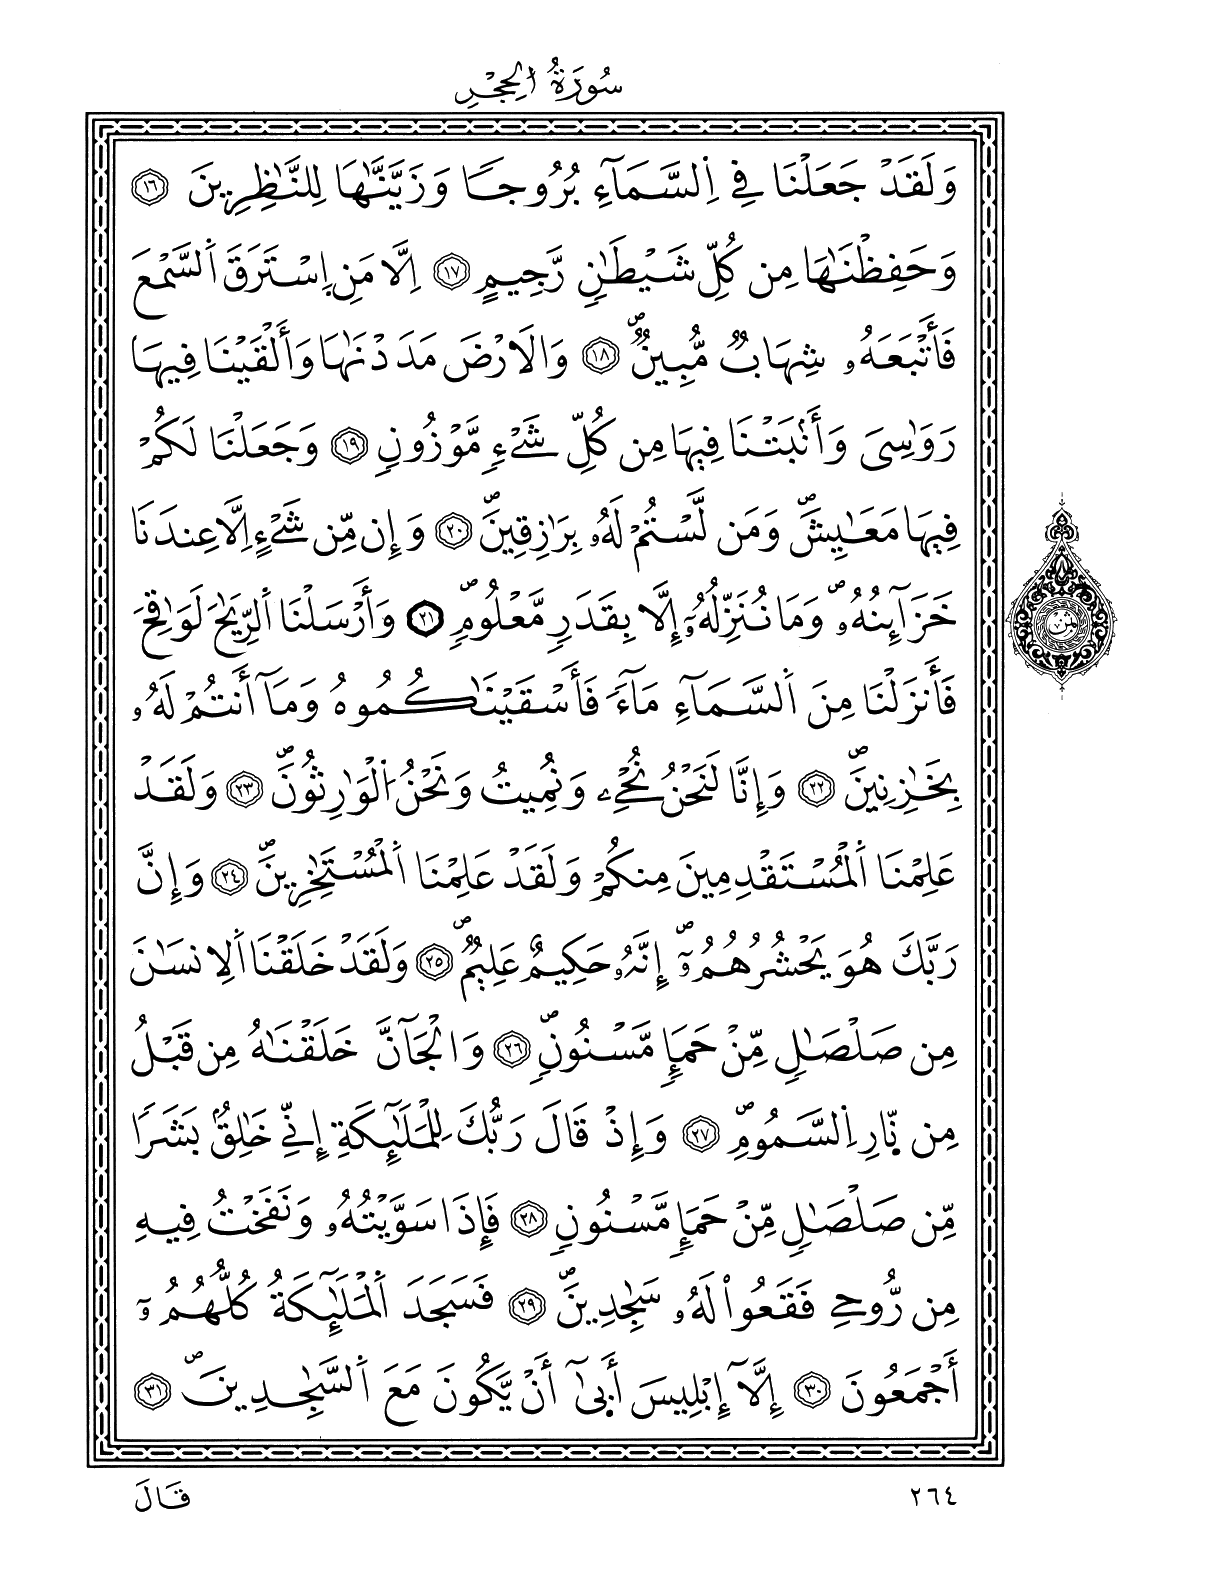 سُورَةُ الحِجْرِ
وَلَقَدْ جَعَلْنَا فِي اِ۬لسَّمَآءِ بُرُوجاٗ وَزَيَّنَّٰهَا لِلنَّٰظِرِينَ ١٦
وَحَفِظْنَٰهَا مِن كُلِّ شَيْطَٰنٖ رَّجِيمٍ ١٧ اِلَّا مَنِ اِ۪سْتَرَقَ اَ۬لسَّمْعَ
فَأَتْبَعَهُۥ شِهَابٞ مُّبِينٞۖ ١٨ وَالَارْضَ مَدَدْنَٰهَا وَأَلْقَيْنَا فِيهَا
رَوَٰسِىَ وَأَنۢبَتْنَا فِيهَا مِن كُلِّ شَےْءٖ مَّوْزُونٖ ١٩ وَجَعَلْنَا لَكُمْ
فِيهَا مَعَٰيِشَۖ وَمَن لَّسْتُمْ لَهُۥ بِرَٰزِقِينَۖ ٢٠ وَإِن مِّن شَےْءٍ اِلَّا عِندَنَا
خَزَآئِنُهُۥۖ وَمَا نُنَزِّلُهُۥٓ إِلَّا بِقَدَرٖ مَّعْلُومٖۖ ٢١ وَأَرْسَلْنَا اَ۬لرِّيَٰحَ لَوَٰقِحَ
فَأَنزَلْنَا مِنَ اَ۬لسَّمَآءِ مَآءٗ فَأَسْقَيْنَٰكُمُوهُ وَمَآ أَنتُمْ لَهُۥ
بِخَٰزِنِينَۖ ٢٢ وَإِنَّا لَنَحْنُ نُحْےِۦ وَنُمِيتُ وَنَحْنُ اُ۬لْوَٰرِثُونَۖ ٢٣ وَلَقَدْ
عَلِمْنَا اَ۬لْمُسْتَقْدِمِينَ مِنكُمْ وَلَقَدْ عَلِمْنَا اَ۬لْمُسْتَٰخِرِينَۖ ٢٤ وَإِنَّ
رَبَّكَ هُوَ يَحْشُرُهُمُۥٓۖ إِنَّهُۥ حَكِيمٌ عَلِيمٞۖ ٢٥ وَلَقَدْ خَلَقْنَا اَ۬لِانسَٰنَ
مِن صَلْصَٰلٖ مِّنْ حَمَإٖ مَّسْنُونٖۖ ٢٦ وَالْجَآنَّ خَلَقْنَٰهُ مِن قَبْلُ
مِن نّ۪ارِ اِ۬لسَّمُومِۖ ٢٧ وَإِذْ قَالَ رَبُّكَ لِلْمَلَٰٓئِكَةِ إِنِّے خَٰلِقُۢ بَشَراٗ
مِّن صَلْصَٰلٖ مِّنْ حَمَإٖ مَّسْنُونٖ ٢٨ فَإِذَا سَوَّيْتُهُۥ وَنَفَخْتُ فِيهِ
مِن رُّوحِے فَقَعُواْ لَهُۥ سَٰجِدِينَۖ ٢٩ فَسَجَدَ اَ۬لْمَلَٰٓئِكَةُ كُلُّهُمُۥٓ
أَجْمَعُونَ ٣٠ إِلَّآ إِبْلِيسَ أَب۪يٰٓ أَنْ يَّكُونَ مَعَ اَ۬لسَّٰجِدِينَۖ ٣١
٢٦٤
قَالَ